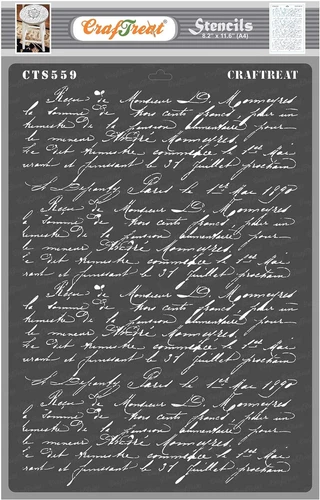 CrafTreat
Stencils
8.2" x 11.6" (A4)
CTS559 CRAFTREAT
Reçu de Monsieur D. Monneyres
la somme de trois cents francs pour un
trimestre de la pension alimentaire pour
le mineur André Monneyres,
Le dit trimestre commence le 1er Mai
et finissant le 31 juillet prochain
Paris le 1er Mai 1898
Reçu de Monsieur D. Monneyres
la somme de trois cents francs pour un
trimestre de la pension alimentaire pour
le mineur André Monneyres,
Le dit trimestre commence le 1er Mai
et finissant le 31 juillet prochain
Reçu de Monsieur D. Monneyres
la somme de trois cents francs pour un
trimestre de la pension alimentaire pour
le mineur André Monneyres,
Le dit trimestre commence le 1er Mai
et finissant le 31 juillet prochain
Paris le 1er Mai 1898
Reçu de Monsieur D. Monneyres
la somme de trois cents francs pour un
trimestre de la pension alimentaire pour
le mineur André Monneyres,
Le dit trimestre commence le 1er Mai
et finissant le 31 juillet prochain